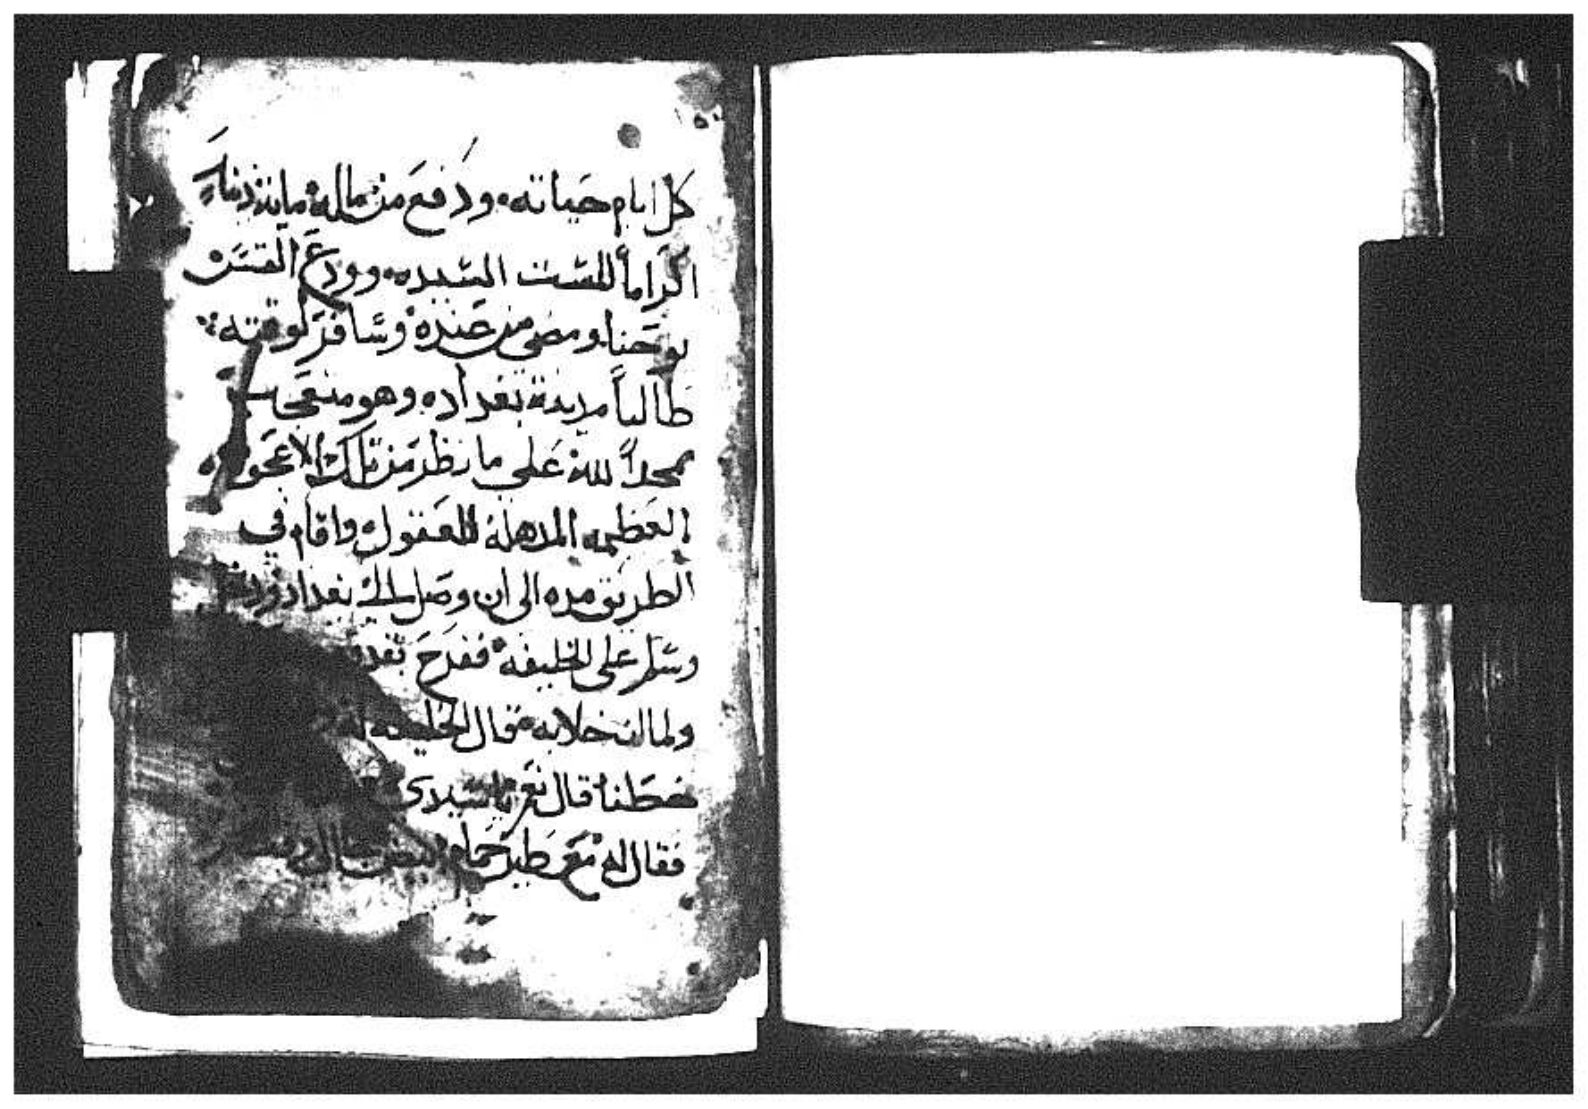 كل ايام حياته ودفع من ماله ماية دينار
اكراماً للست السيده وودع القس
يوحنا ومضي من عنده وسافر لوقته
طالباً مدينة بغداد وهو متعجب
ممجداً لله علي ما نظر من تلك الاعجوبه
العظيمه المدهلة للعقول واقام في
الطريق مده الي ان وصل الي بغداد
وسلم علي الخليفه ففرح
ولما ان خلا به قال الخليفه
قال نعم يا سيدي
فقال له نعم طير حمام ابيض